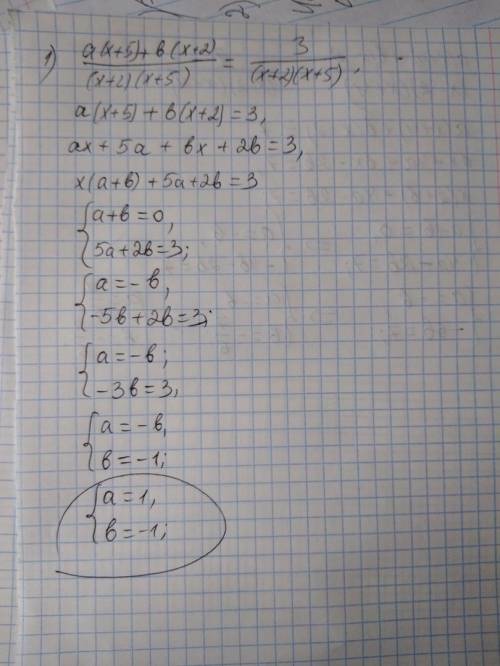 1) a(x+5)+b(x+2) / (x+2)(x+5) = 3 / (x+2)(x+5).
a(x+5) + b(x+2) = 3,
ax + 5a + bx + 2b = 3,
x(a+b) + 5a+2b = 3
{ a+b = 0,
5a+2b=3;
{ a = -b,
-5b+2b=3;
{ a = -b;
-3b=3,
{ a = -b,
b = -1;
{ a = 1,
b = -1;